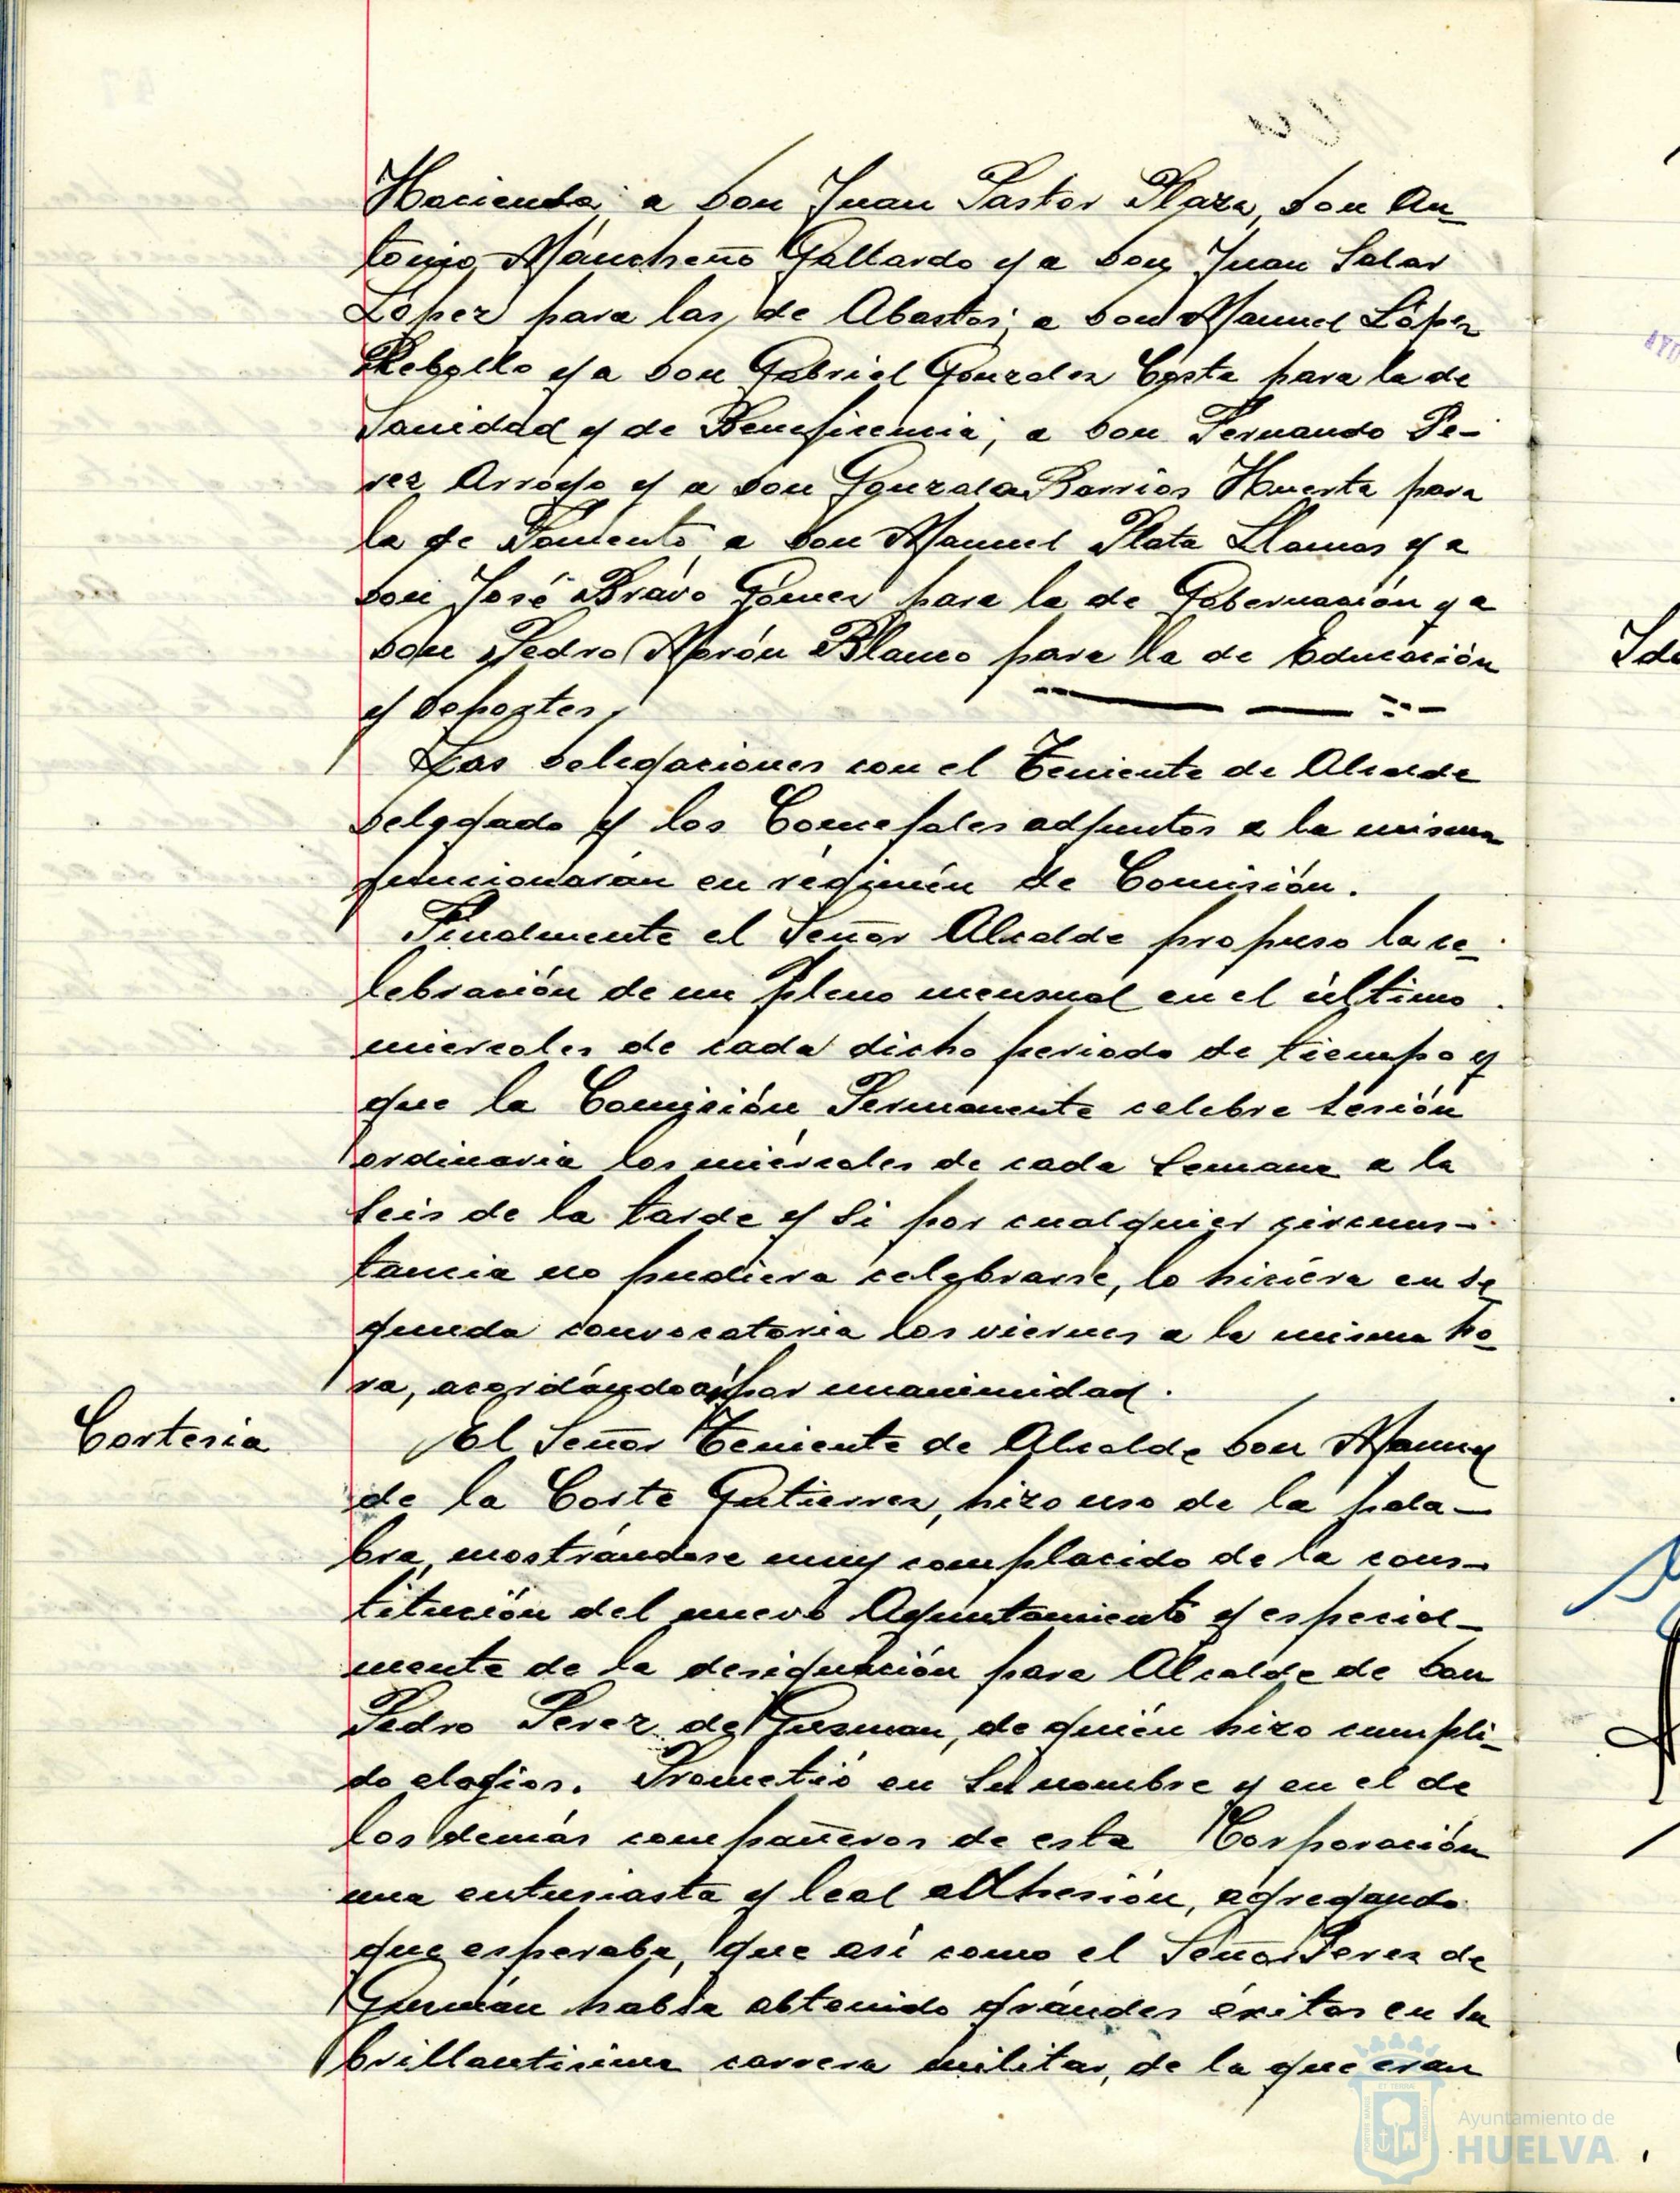 Hacienda; a Don Juan Pastor Plaza, Don An-
tonio Mancheño Gallardo y a Don Juan Salar
López para las de Abastos; a Don Manuel López
Rebollo y a Don Gabriel Gonzalez Costa para la de
Sanidad y de Beneficencia; a Don Fernando Pe-
rez Arroyo y a Don Gonzalo Barrios Huerta para
la de Fomento, a Don Manuel Plata Llamas y a
Don José Bravo Gómez para la de Gobernación y a
Don Pedro Morón Blanco para la de Educación
y Deportes.
Las Delegaciones con el Teniente de Alcalde
Delegado y los Concejales adjuntos a la misma
funcionarán en régimen de Comisión.
Finalmente el Señor Alcalde propuso la ce-
lebración de un pleno mensual en el último
miercoles de cada dicho periodo de tiempo y
que la Comisión Permanente celebre sesión
ordinaria los miércoles de cada semana a la
seis de la tarde y si por cualquier circuns-
tancia no pudiera celebrarse, lo hiciera en se
gunda convocatoria los viernes a la misma ho-
ra, acordándo así por unanimidad.
Cortesia
El Señor Teniente de Alcalde Don Manuel
de la Corte Gutierrez, hizo uso de la pala-
bra, mostrándose muy complacido de la cons-
titución del nuevo Ayuntamiento y especial-
mente de la designación para Alcalde de Don
Pedro Perez de Guzman, de quién hizo cumpli-
do elogios. Prometió en su nombre y en el de
los demás compañeros de esta Corporación
una entusiasta y leal adhesión, agregando
que esperaba, que así como el Señor Perez de
Guzmán había obtenido grandes éxitos en su
brillantisima carrera militar, de la que eran
Ayuntamiento de
HUELVA